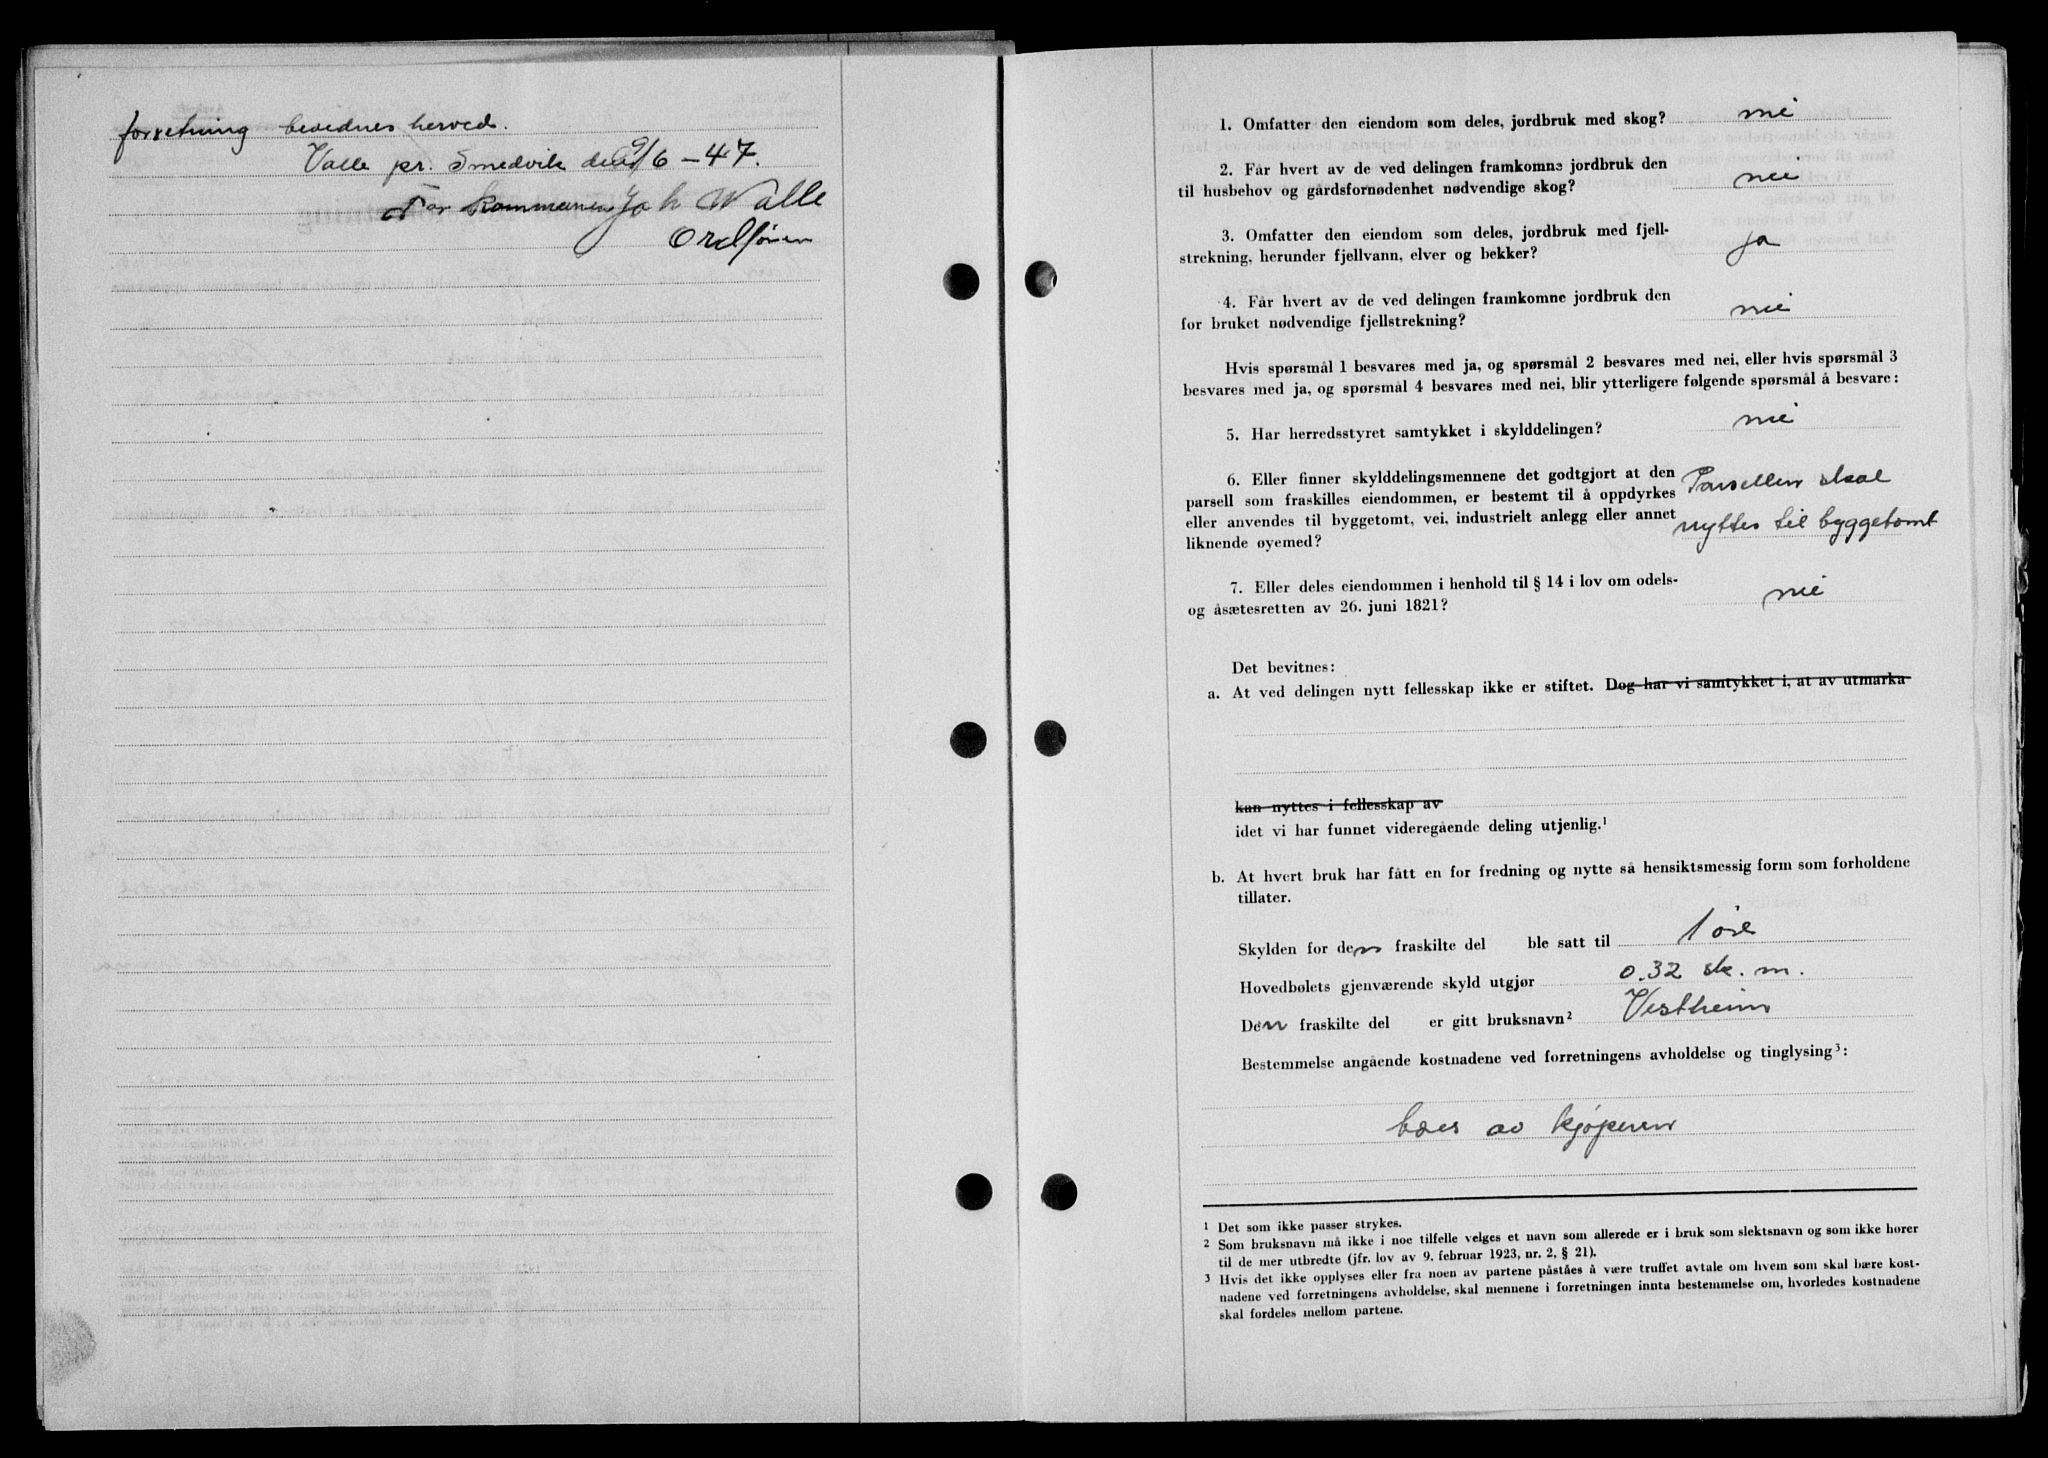 forretning bevidnes herved.
Valle pr. Smedvik den 9/6 – 47.
For kommunen Joh Walle
Ordfører
1. Omfatter den eiendom som deles, jordbruk med skog? nei
2. Får hvert av de ved delingen framkomne jordbruk den
til husbehov og gårdsfornødenhet nødvendige skog? nei
3. Omfatter den eiendom som deles, jordbruk med fjell-
strekning, herunder fjellvann, elver og bekker? ja
4. Får hvert av de ved delingen framkomne jordbruk den
for bruket nødvendige fjellstrekning? nei
Hvis spørsmål 1 besvares med ja, og spørsmål 2 besvares med nei, eller hvis spørsmål 3
besvares med ja, og spørsmål 4 besvares med nei, blir ytterligere følgende spørsmål å besvare:
5. Har herredsstyret samtykket i skylddelingen? nei
6. Eller finner skylddelingsmennene det godtgjort at den
parsell som fraskilles eiendommen, er bestemt til å oppdyrkes
eller anvendes til byggetomt, vei, industrielt anlegg eller annet
liknende øyemed?
Parsellen skal
nyttes til byggetomt
7. Eller deles eiendommen i henhold til § 14 i lov om odels-
og åsætesretten av 26. juni 1821? nei
Det bevitnes:
a. At ved delingen nytt fellesskap ikke er stiftet. Dog har vi samtykket i, at av utmarka
kan nyttes i fellesskap av
idet vi har funnet videregående deling utjenlig.¹
b. At hvert bruk har fått en for fredning og nytte så hensiktsmessig form som forholdene
tillater.
Skylden for den fraskilte del ble satt til 1 øre
Hovedbølets gjenværende skyld utgjør 0.32 sk. m.
Den fraskilte del er gitt bruksnavn² Vestheim
Bestemmelse angående kostnadene ved forretningens avholdelse og tinglysing³:
bæres av kjøperen
¹ Det som ikke passer strykes.
² Som bruksnavn må ikke i noe tilfelle velges et navn som allerede er i bruk som slektsnavn og som ikke hører
til de mer utbredte (jfr. lov av 9. februar 1923, nr. 2, § 21).
³ Hvis det ikke opplyses eller fra noen av partene påståes å være truffet avtale om hvem som skal bære kost-
nadene ved forretningens avholdelse, skal mennene i forretningen innta bestemmelse om, hvorledes kostnadene
skal fordeles mellom partene.